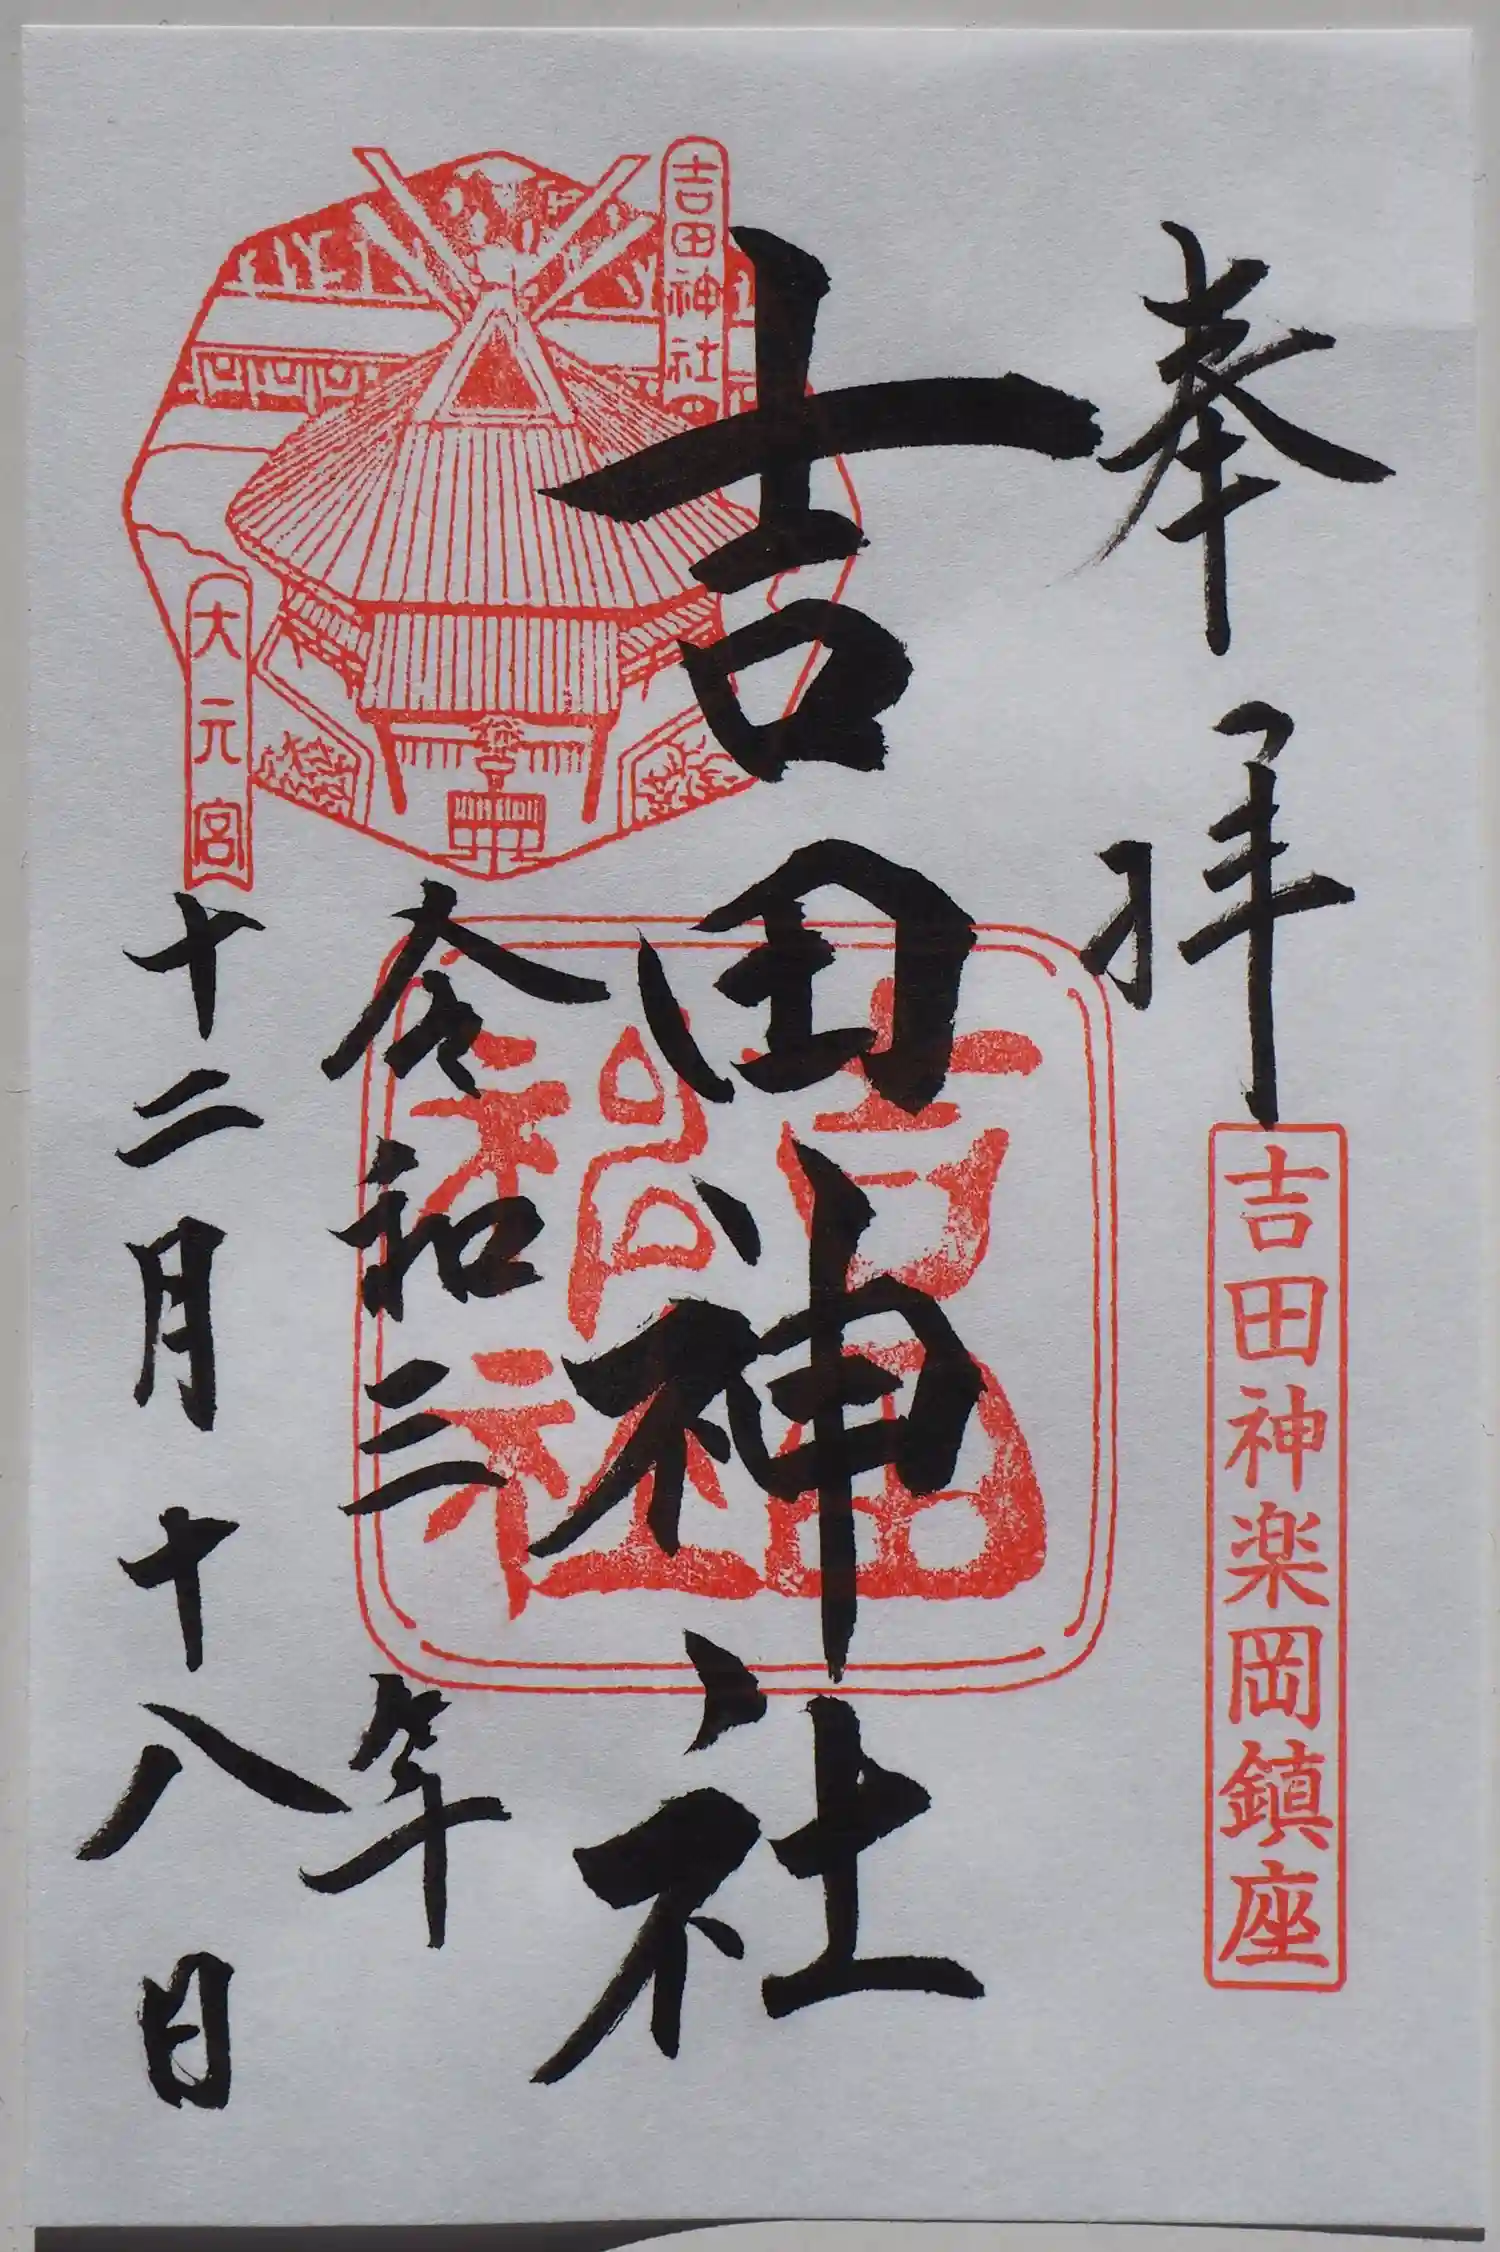 奉拝
吉田神楽岡鎮座
吉田神社
吉田神社
吉田神社
令和三年
大元宮
十二月十八日